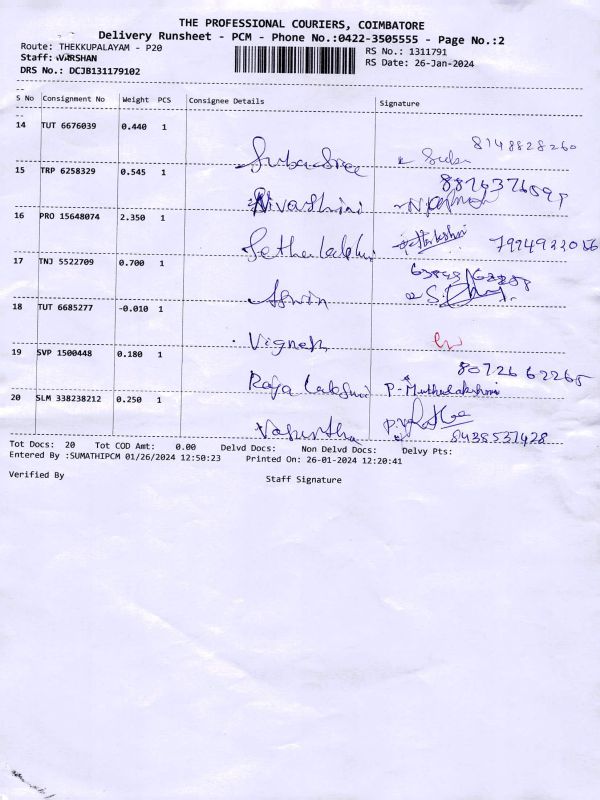 THE PROFESSIONAL COURIERS, COIMBATORE
Delivery Runsheet - PCM - Phone No.:0422-3505555 - Page No.:2
Route: THEKKUPALAYAM - P20
RS No.: 1311791
Staff: VARSHAN
RS Date: 26-Jan-2024
DRS No.: DCJB131179102
S No Consignment No Weight PCS Consignee Details Signature
14 TUT 6676039 0.440 1
Subasree 8148828260
15 TRP 6258329 0.545 1
Nivashini
16 PRO 15648074 2.350 1
Sethulakshmi
17 TNJ 5522709 0.700 1
Aswin
18 TUT 6685277 -0.010 1
Vignesh
19 SVP 1500448 0.180 1
8072662265
Raja Lakshmi P-Muthulakshmi
20 SLM 338238212 0.250 1
Vasuntha 8438537428
Tot Docs: 20 Tot COD Amt: 0.00 Delvd Docs: Non Delvd Docs: Delvy Pts:
Entered By :SUMATHIPCM 01/26/2024 12:50:23 Printed On: 26-01-2024 12:20:41
Verified By
Staff Signature